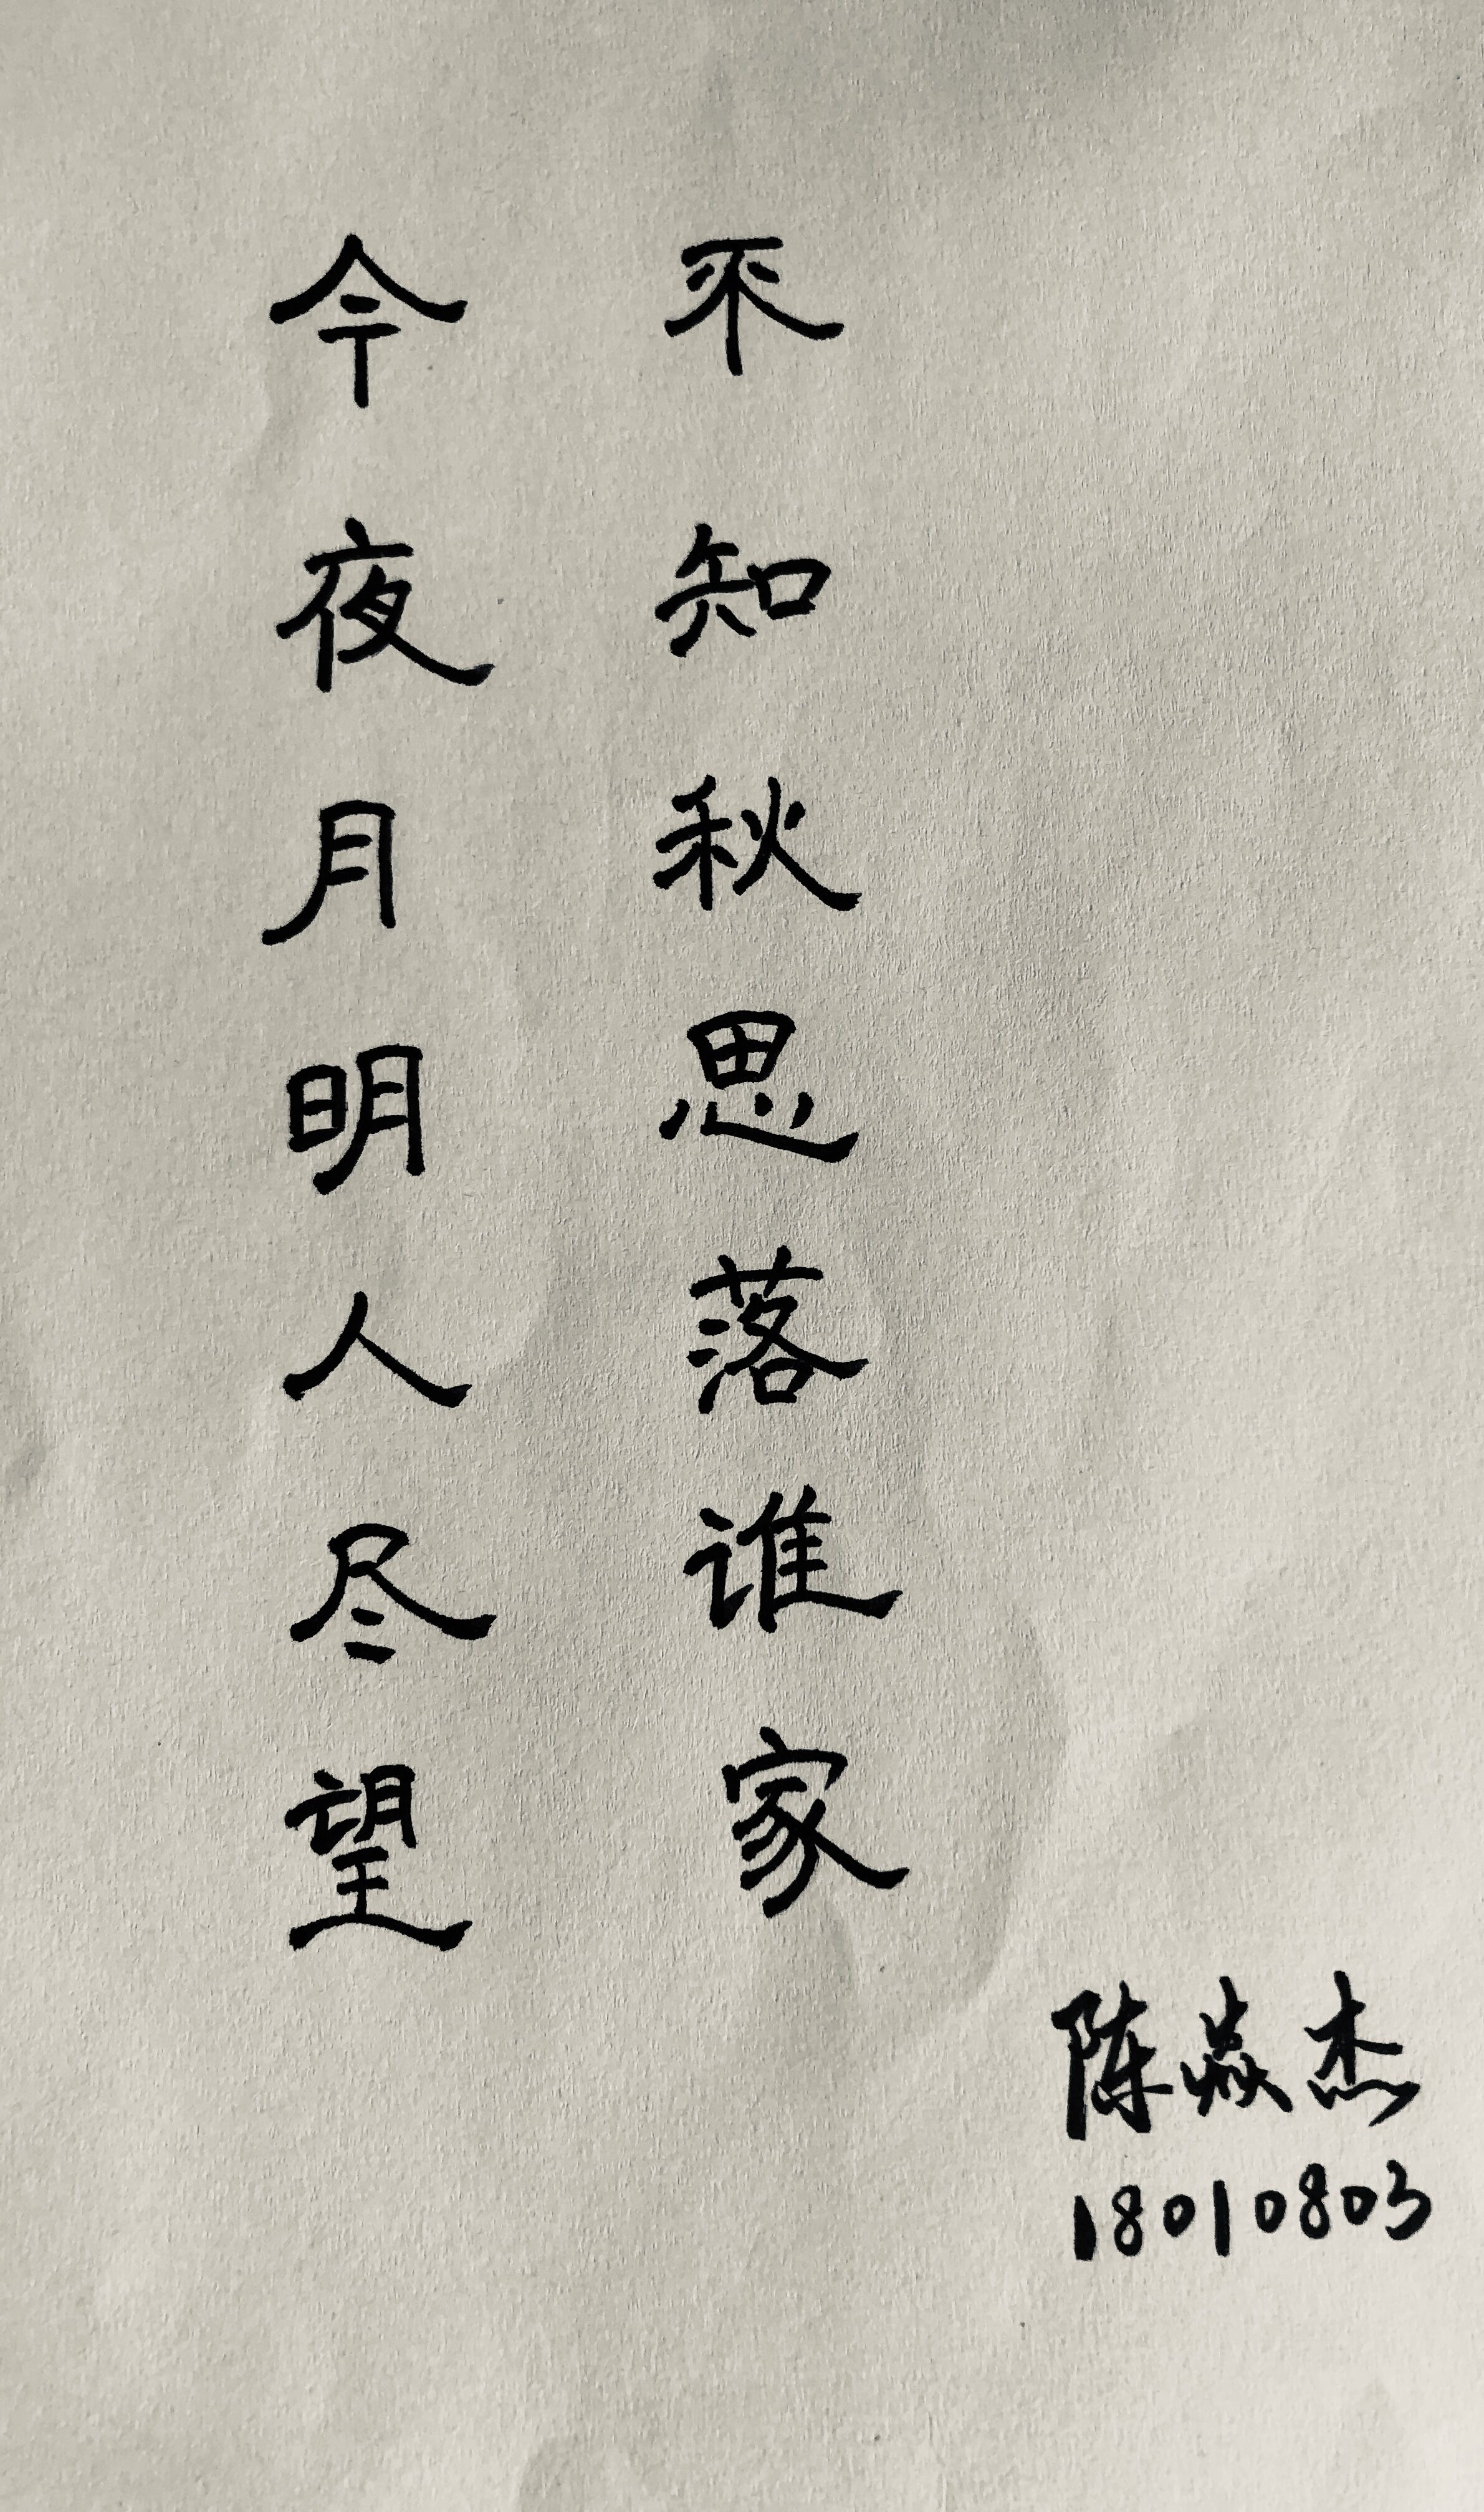 今夜月明人尽望
不知秋思落谁家
陈焱杰
18010803